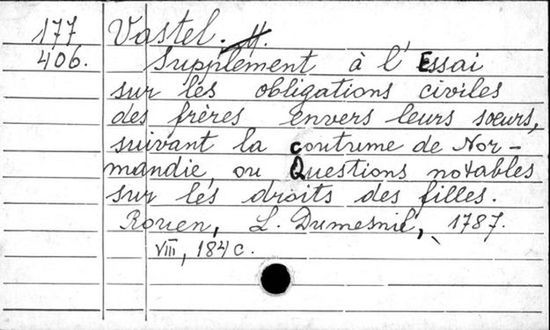 177 Vastel. H.
406. Supplément à l'Essai
sur les obligations civiles
des frères envers leurs sœurs,
suivant la coutume de Nor-
mandie, ou Questions notables
sur les droits des filles.
Rouen, L. Dumesnil, 1787.
VIII, 184 c.